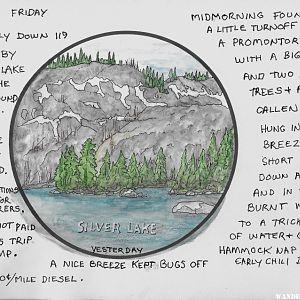 FRIDAY
LY DOWN 119
BY
LAKE
HE
OUND
TIONS
FOR
RERS.
NOT PAID
S TRIP.
MP.
MIDMORNING FOU
A LITTLE TURNOFF
A PROMONTOR
WITH A BIG
AND TWO
TREES + A
CALLEN
HUNG IN
BREEZ
SHORT
DOWN A
AND IN
BURNT W
TO A TRIC
OF WATER +
HAMMOCK NAP
EARLY CHILI
SILVER LAKE
YESTERDAY
A NICE BREEZE KEPT BUGS OFF
0¢/MILE DIESEL.